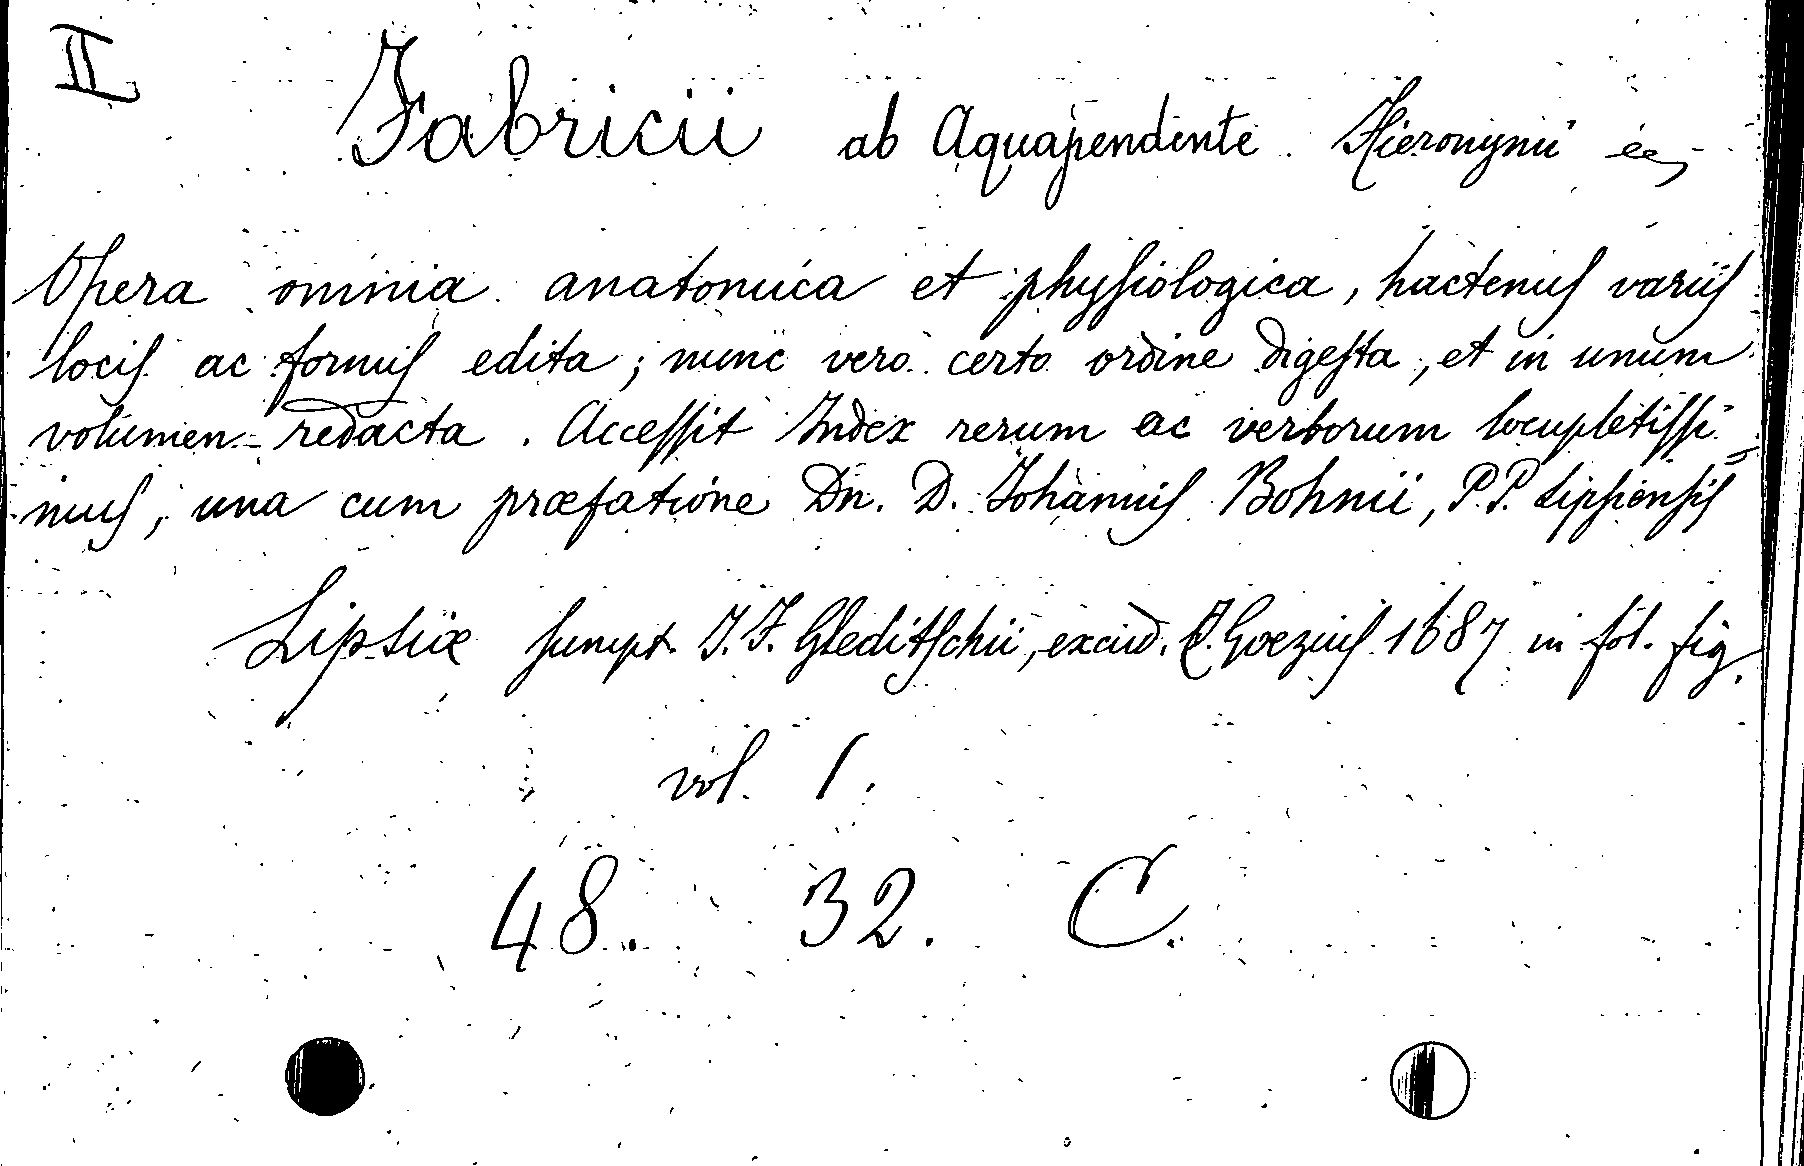 II
Fabricii ab Aquapendente Hieronymi
Opera omnia anatomica et physiologica, hactenus variis
locis ac formis edita; nunc vero certo ordine digesta, et in unum
volumen redacta. Accessit Index rerum ac verborum locupletissi-
mus, una cum præfatione Dn. D. Johannis Bohnii, P.P. Lipsiensis
Lipsiæ sumpt. J.F. Gleditschii, excud. C. Goezius 1687 in fol. fig.
vol. 1.
48. 32. C.